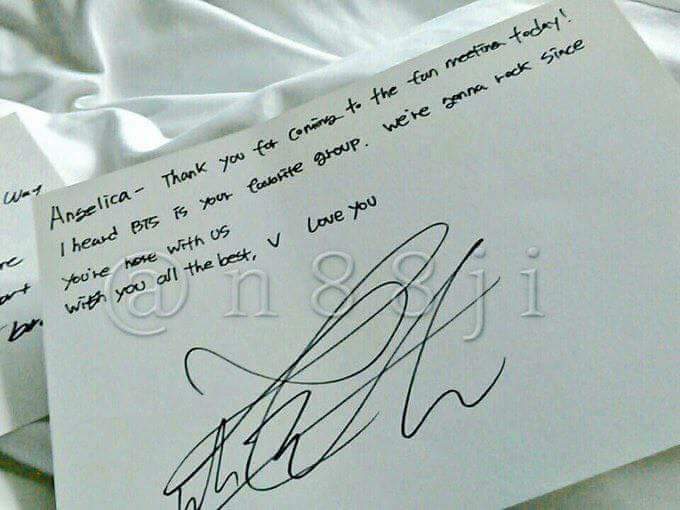 Angelica - Thank you for coming to the fan meeting today!
I heard BTS is your favorite group. We're gonna rock since
You're here with us
Wish you all the best, V Love you
@n88ji
Way